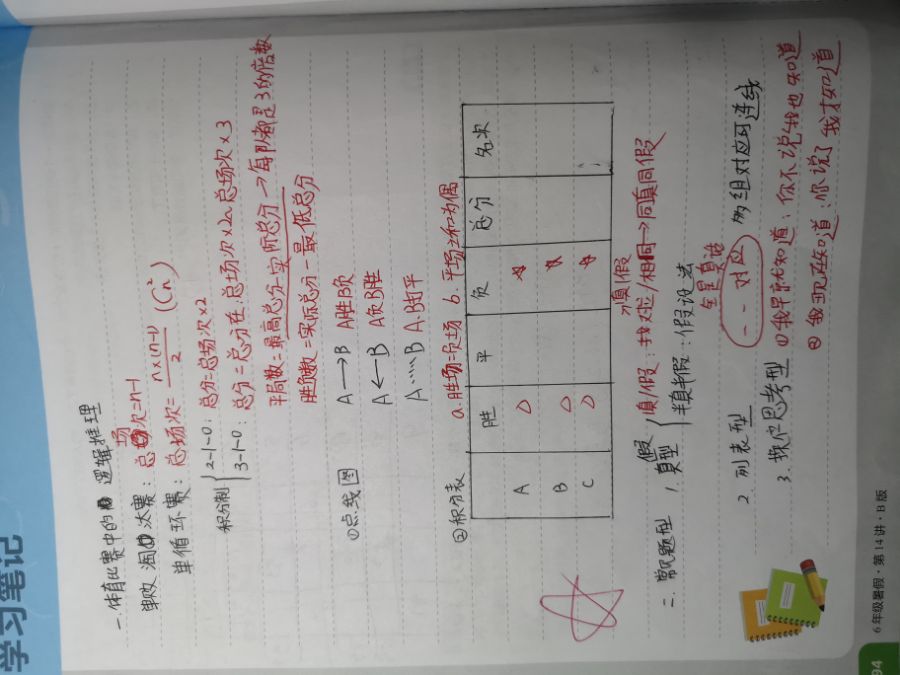 学习笔记
一.体育比赛中的逻辑推理
单败淘汰赛:总场次=n-1
单循环赛:总场次=n×(n-1)/2 (Cn²)
积分制 2-1-0:总分=总场次×2
3-1-0:总分在:总场次×2~总场次×3
平局数=最高总分-实际总分→每队都是3的倍数
胜负数=实际总分-最低总分
①点线图 A→B A胜B负
A←B A负B胜
A……B A.B打平
②积分表 a.胜场=负场 b.平场之和为偶
胜 平 负 总分 名次
A
B
C
二.常见题型 1.真假型 1真/假:找对应/相同→同真同假
半真半假:假设法
全是真话
2.列表型 一一对应 多组对应可连线
3.我也思考型 ①我早就知道:你不说我也知道
②我现在知道:你说了我才知道
6年级暑假·第14讲·B版
94